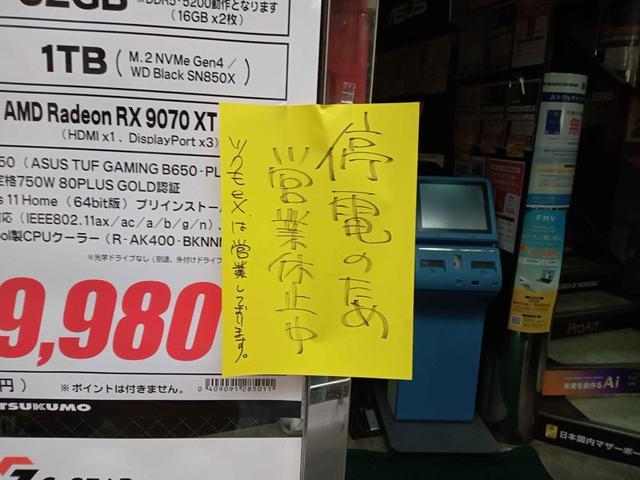 32GB
※DDR5-5200動作となります
(16GB x2枚)
1TB
( M.2 NVMe Gen4 /
WD Black SN850X
AMD Radeon RX 9070 XT
(HDMI x1、DisplayPort x3)
(ASUS TUF GAMING B650-PL
定格750W 80PLUS GOLD認証
s 11 Home (64bit版) プリインストー
対応 (IEEE802.11ax/ac/a/b/g/n)、
ool製CPUクーラー (R-AK400-BKNNM
※光学ドライブなし (別途、外付けドライブ
9,980
円)
※ ポイントは付きません。
0 409091 285011
TSUKUMO
停電のため
営業休止中
は営業しております。
ASUS
TSUKUMO
FMV
ProArt
未来を自作る Ai
日本国内マザーボー